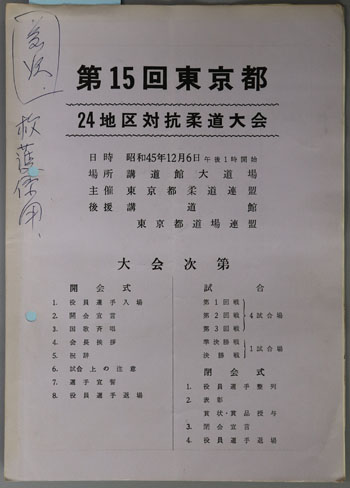 救護係用
第15回東京都
24地区対抗柔道大会
日時 昭和45年12月6日 午後1時開始
場所 講道館大道場
主催 東京都柔道連盟
後援 講道館
東京都道場連盟
大会次第
開会式
1. 役員選手入場
2. 開会宣言
3. 国歌斉唱
4. 会長挨拶
5. 祝辞
6. 試合上の注意
7. 選手宣誓
8. 役員選手退場
試合
第1回戦
第2回戦
第3回戦
4試合場
準決勝戦
決勝戦
1試合場
閉会式
1. 役員選手整列
2. 表彰
賞状・賞品授与
3. 閉会宣言
4. 役員選手退場